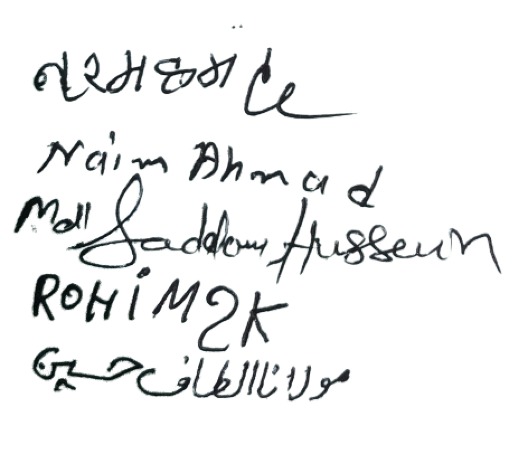 Naim Ahmad
Moll Saddam Hussein
ROHiM SK
مولانا الطاف حسین